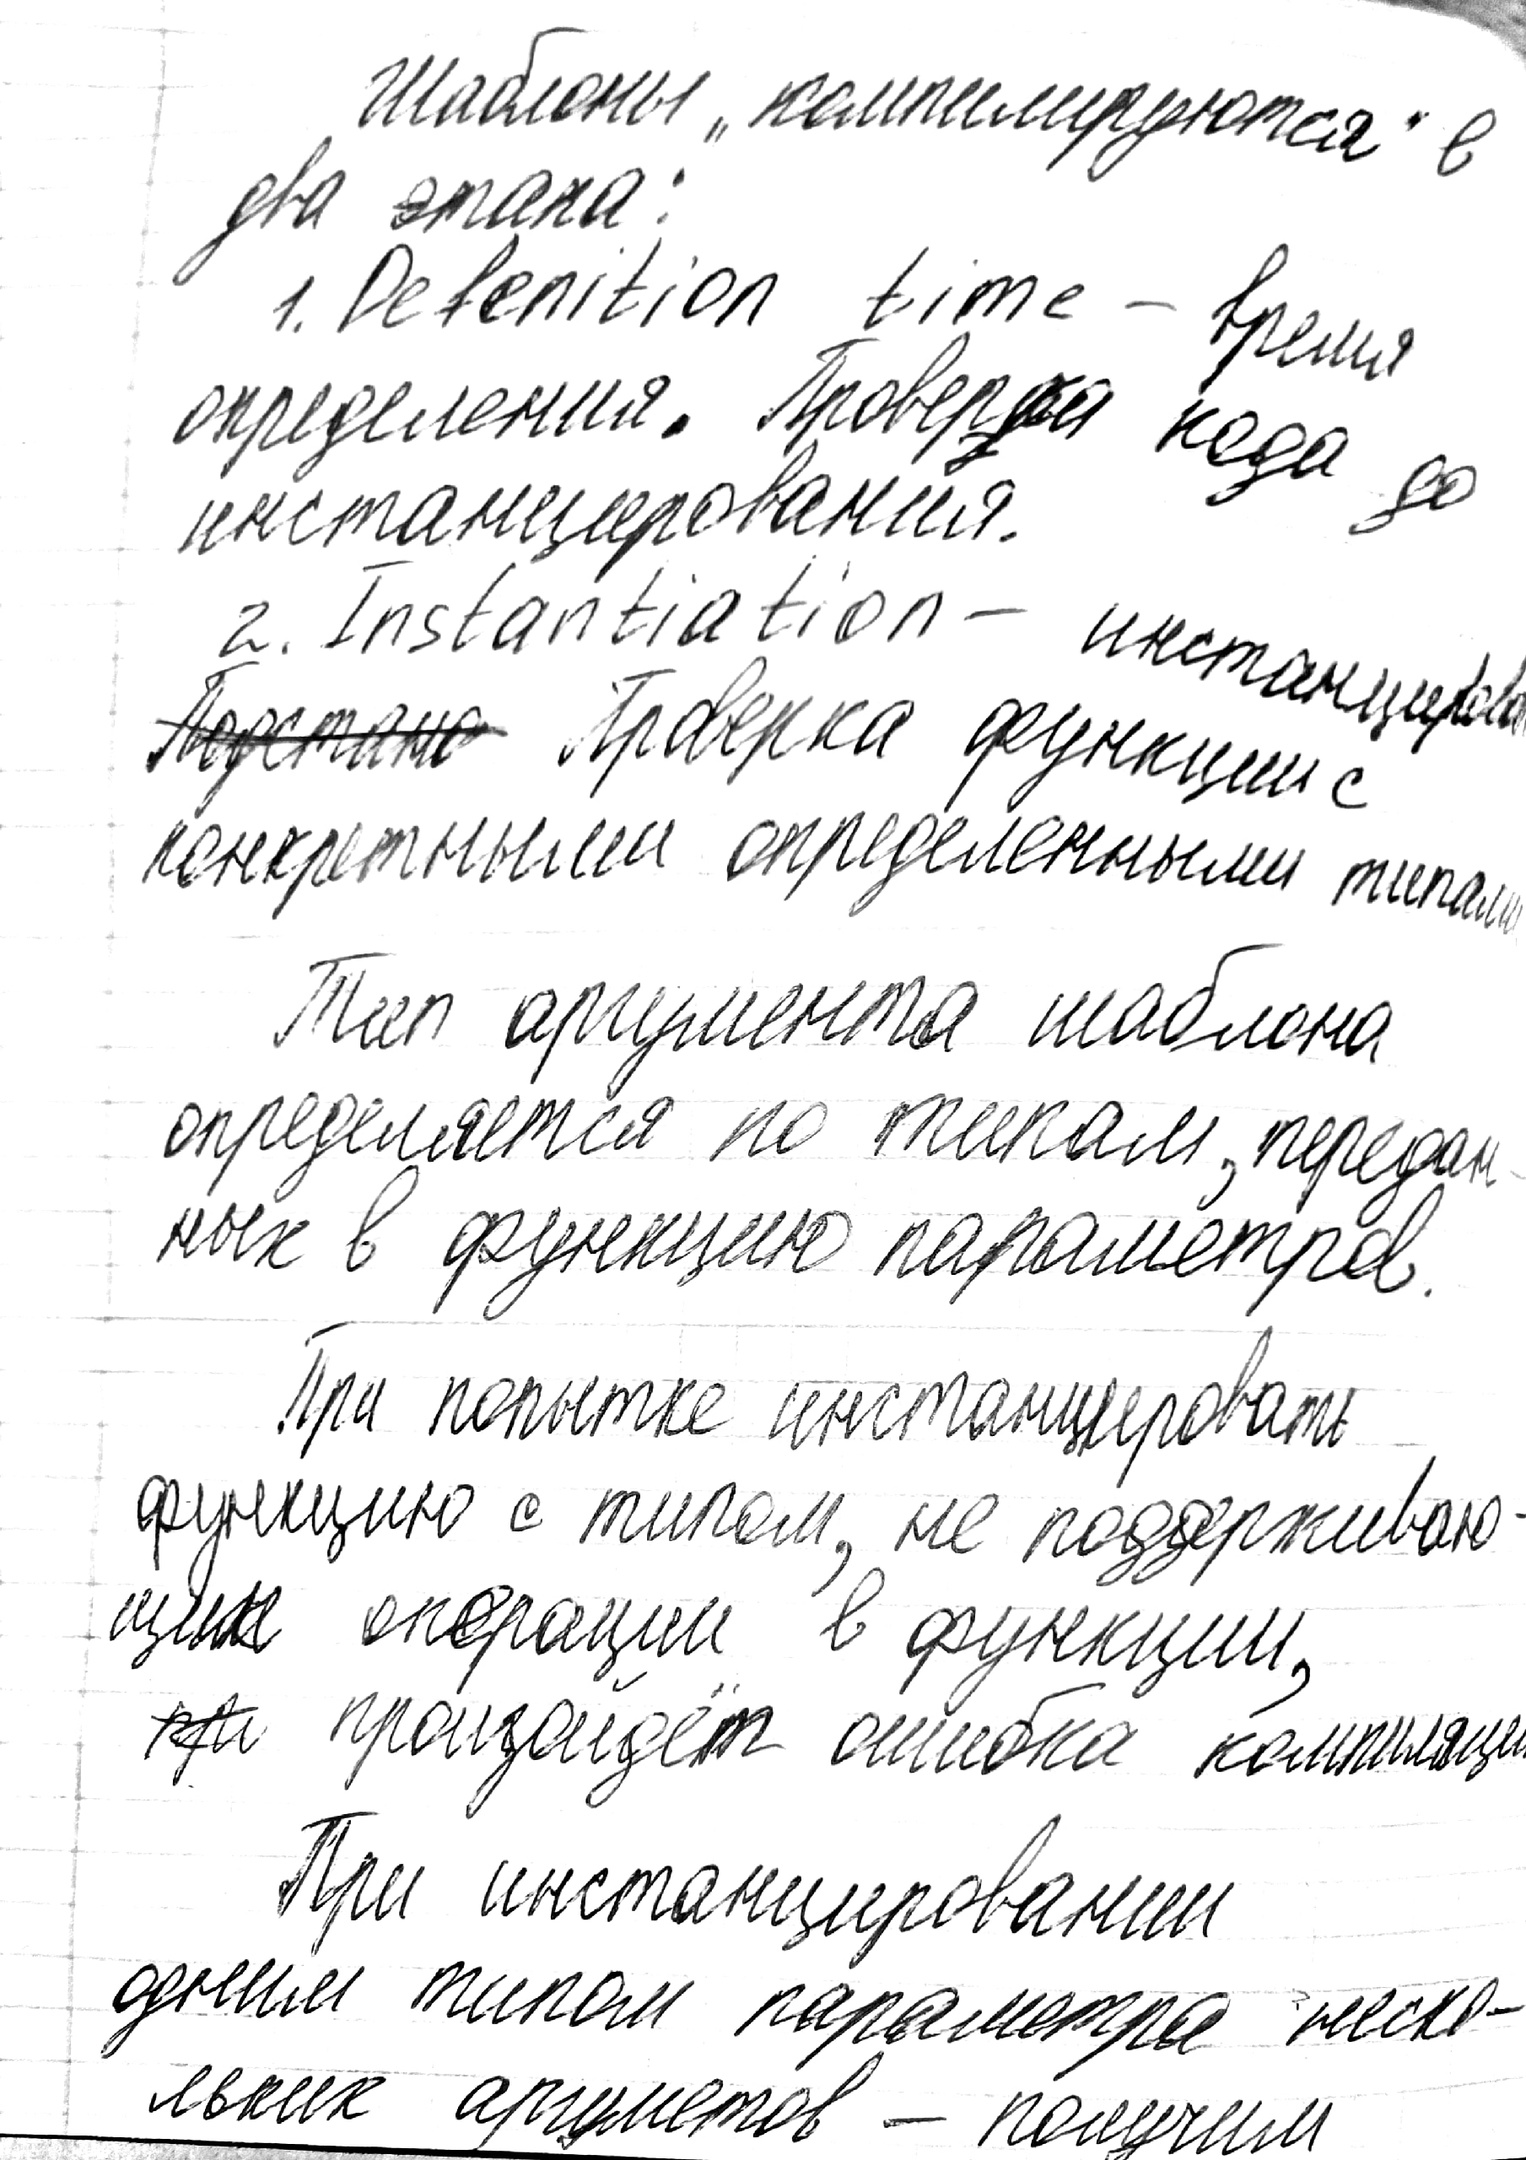 Шаблоны „компилируются" в
два этапа:
1. Defenition time – время
определения. Проверка кода до
инстанцирования.
2. Instantiation – инстанцирован
Проверка функции с
конкретными определенными типами
Тип аргумента шаблона
определяется по типам, передан-
ных в функцию параметров.
При попытке инстанцировать
функцию с типом, не поддерживаю-
щим операции в функции,
произойдёт ошибка компиляции
При инстанцировании
одним типом параметра неско-
льких аргуметов – получим